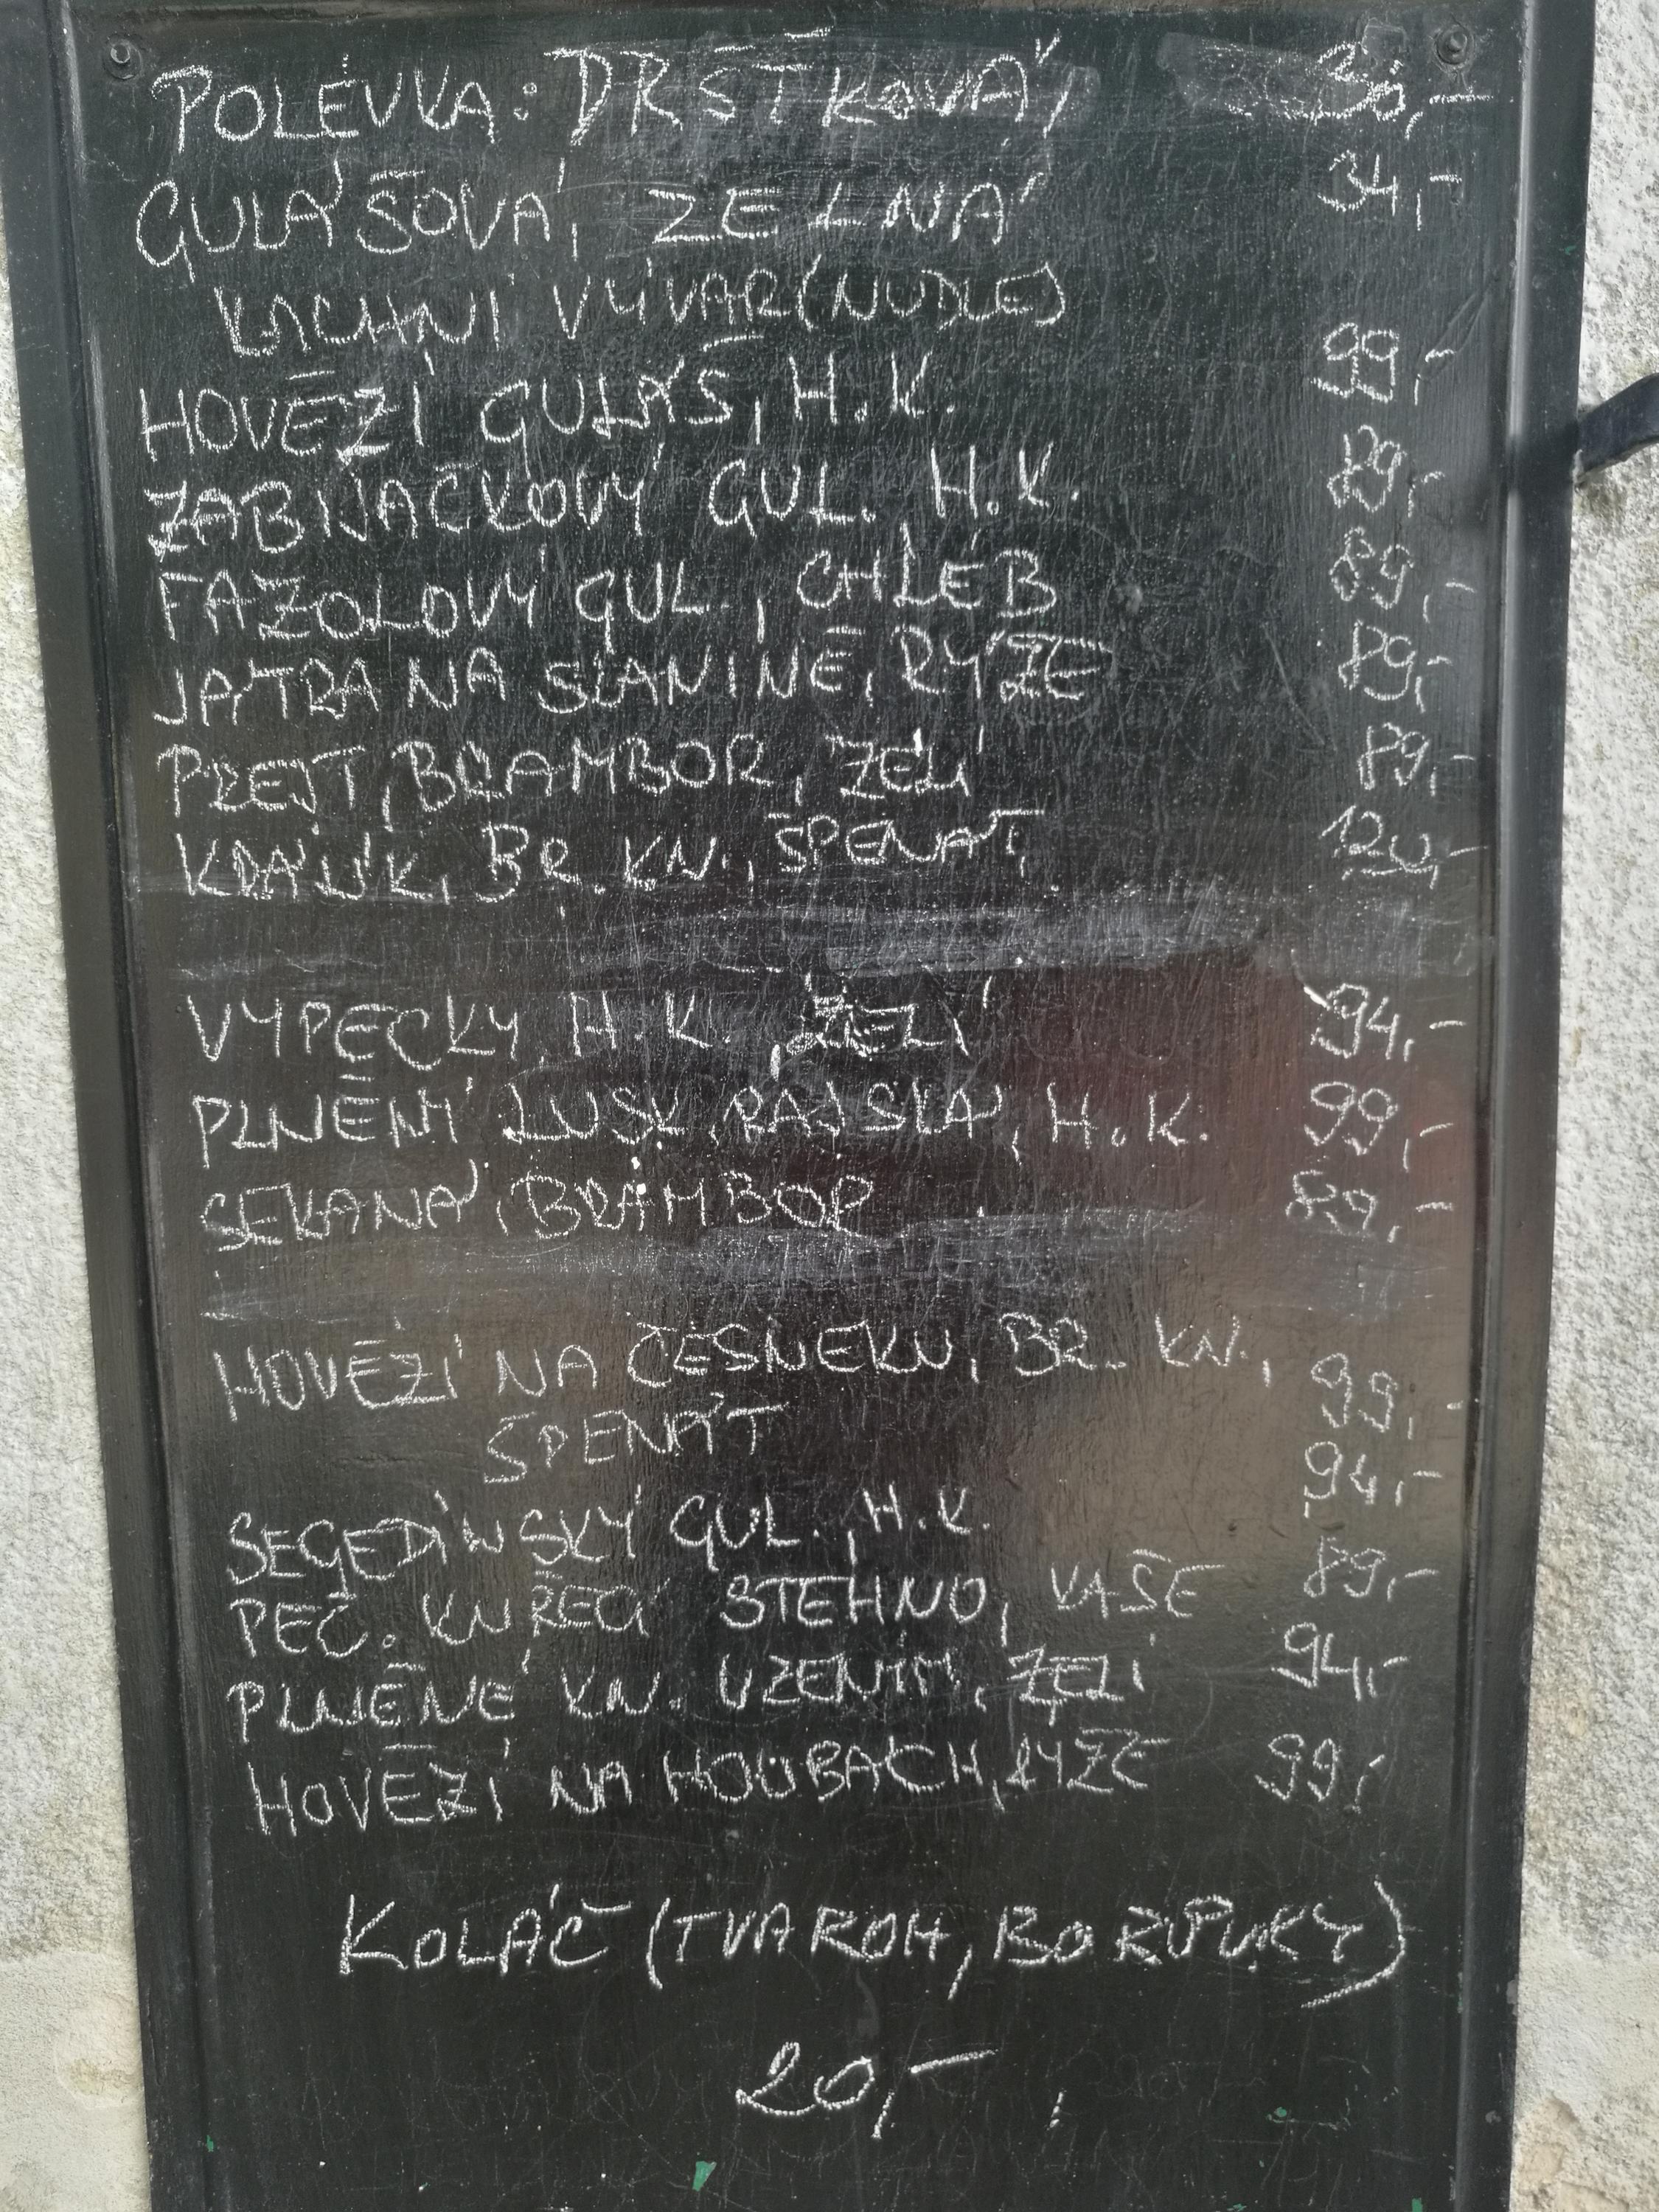 POLÉVKA: DRŠŤKOVÁ,
GULÁŠOVÁ, ZELNÁ 34,-
KACHNÍ VÝVAR (NUDLE)
HOVĚZÍ GULÁŠ, H.K. 99,-
ZABIJAČKOVÝ GUL., H.K. 89,-
FAZOLOVÝ GUL., CHLÉB 89,-
JÁTRA NA SLANINĚ, RÝŽE 89,-
PREJT, BRAMBOR, ZELÍ 89,-
KRÁLÍK, BR. KN., ŠPENÁT
VÝPEČKY, H.K., ZELÍ 94,-
PLNĚNÝ LUSK, RAJSKÁ, H.K. 99,-
SEKANÁ, BRAMBOR 89,-
HOVĚZÍ NA ČESNEKU, BR. KN.,
ŠPENÁT 99,-
SEGEDÍNSKÝ GUL., H.K. 94,-
PEČ. KUŘECÍ STEHNO, KAŠE 89,-
PLNĚNÉ KN. UZENÝM, ZELÍ 94,-
HOVĚZÍ NA HOUBÁCH, RÝŽE 99,-
KOLÁČ (TVAROH, BORŮVKY)
20,-